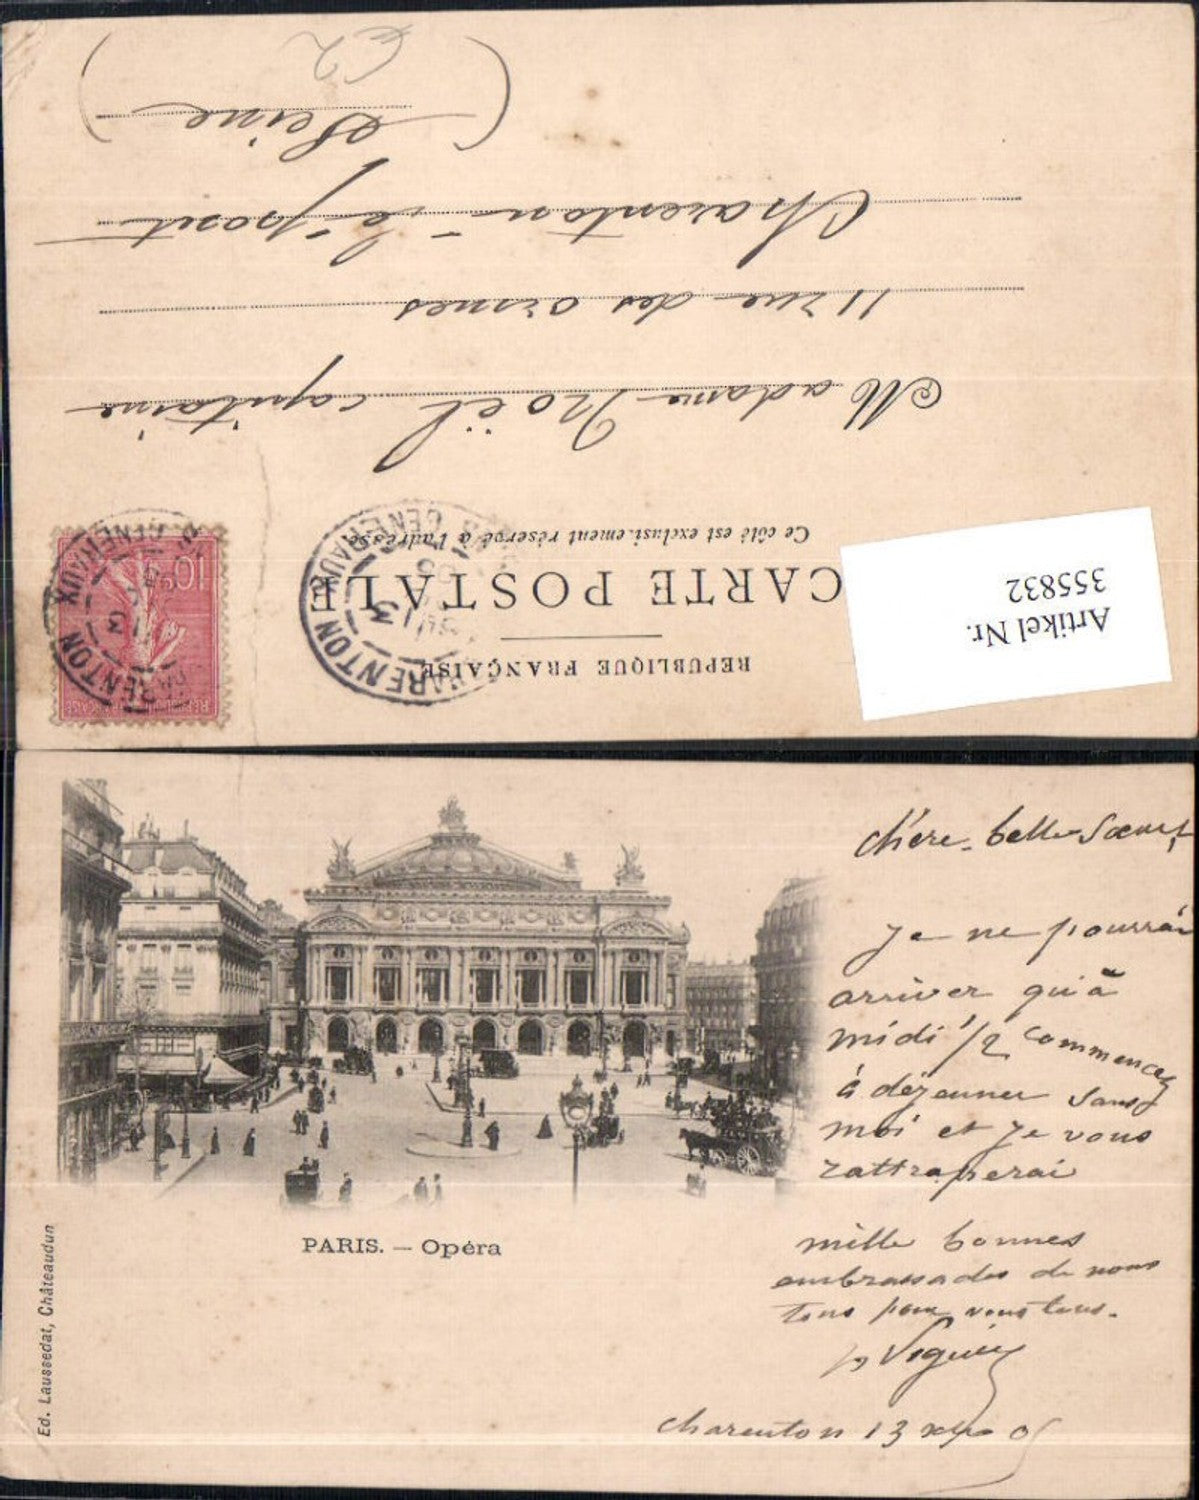 RÉPUBLIQUE FRANÇAISE
CARTE POSTALE
Ce côté est exclusivement réservé à l'adresse
Artikel Nr.
355832
10c
CHARENTON
Madame Noël capitaine
11 rue des ormes
Charenton le pont
(Seine)
PARIS. — Opéra
Ed. Laussedat, Châteaudun
chère belle-Sœur,
Je ne pourrai
arriver qu'à
midi 1/2 commencez
à déjeuner sans
moi et je vous
rattraperai
mille bonnes
embrassades de nous
tous pour vous tous.
Charenton 13